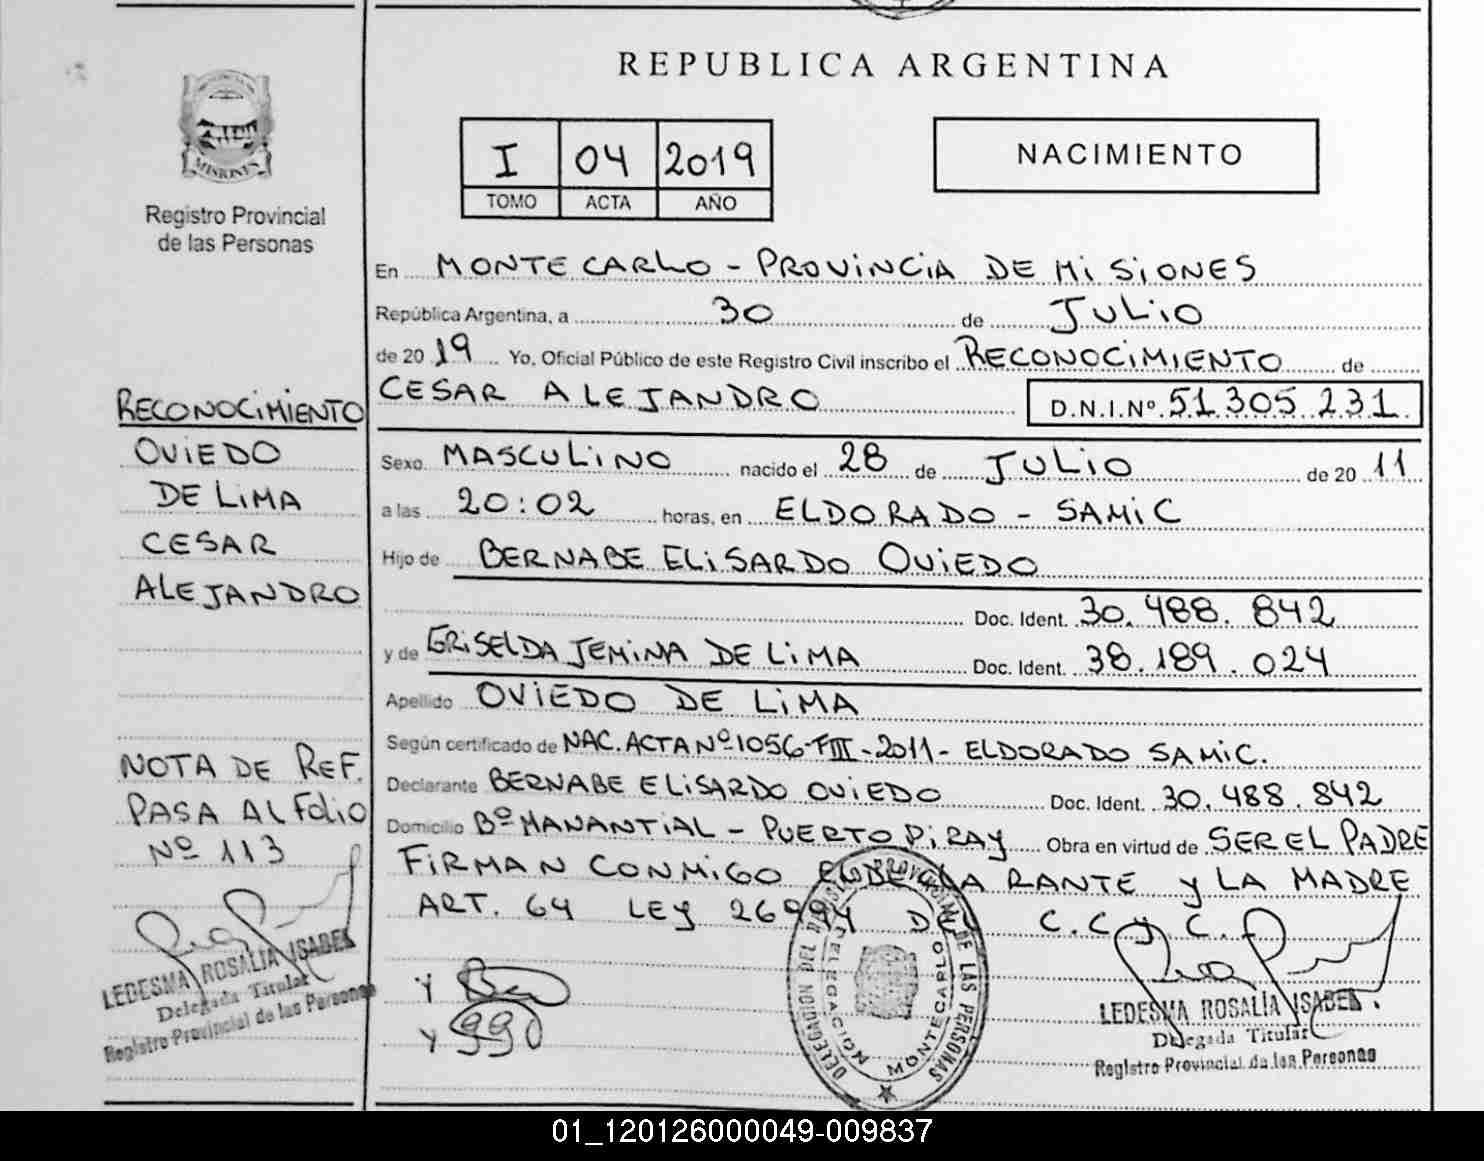 REPUBLICA ARGENTINA
MISIONES
Registro Provincial
de las Personas
I 04 2019
TOMO ACTA AÑO
NACIMIENTO
En MONTECARLO - PROVINCIA DE MISIONES
República Argentina, a 30 de JULIO
de 20 19 Yo, Oficial Público de este Registro Civil inscribo el RECONOCIMIENTO de
CESAR ALEJANDRO D.N.I.Nº 51.305.231
Sexo MASCULINO nacido el 28 de JULIO de 20 11
a las 20:02 horas, en ELDORADO - SAMIC
Hijo de BERNABE ELISARDO OVIEDO
Doc. Ident. 30.488.842
y de GRISELDA JEMINA DE LIMA Doc. Ident. 38.189.024
Apellido OVIEDO DE LIMA
Según certificado de NAC. ACTA Nº 1056-TIII-2011- ELDORADO SAMIC.
Declarante BERNABE ELISARDO OVIEDO Doc. Ident. 30.488.842
Domicilio Bº MANANTIAL - PUERTO PIRAY Obra en virtud de SER EL PADRE
FIRMAN CONMIGO RANTE y LA MADRE
ART. 64 LEY 26994 C.C y C.
RECONOCIMIENTO
OVIEDO
DE LIMA
CESAR
ALEJANDRO
NOTA DE REF.
PASA AL FOLIO
Nº 113
LEDESMA ROSALIA ISABEL
Delegada Titular
Registro Provincial de las Personas
DELEGACION DEL REGISTRO PROVINCIAL DE LAS PERSONAS
DELEGACION MONTECARLO
LEDESMA ROSALIA ISABEL
Delegada Titular
Registro Provincial de las Personas
01_120126000049-009837